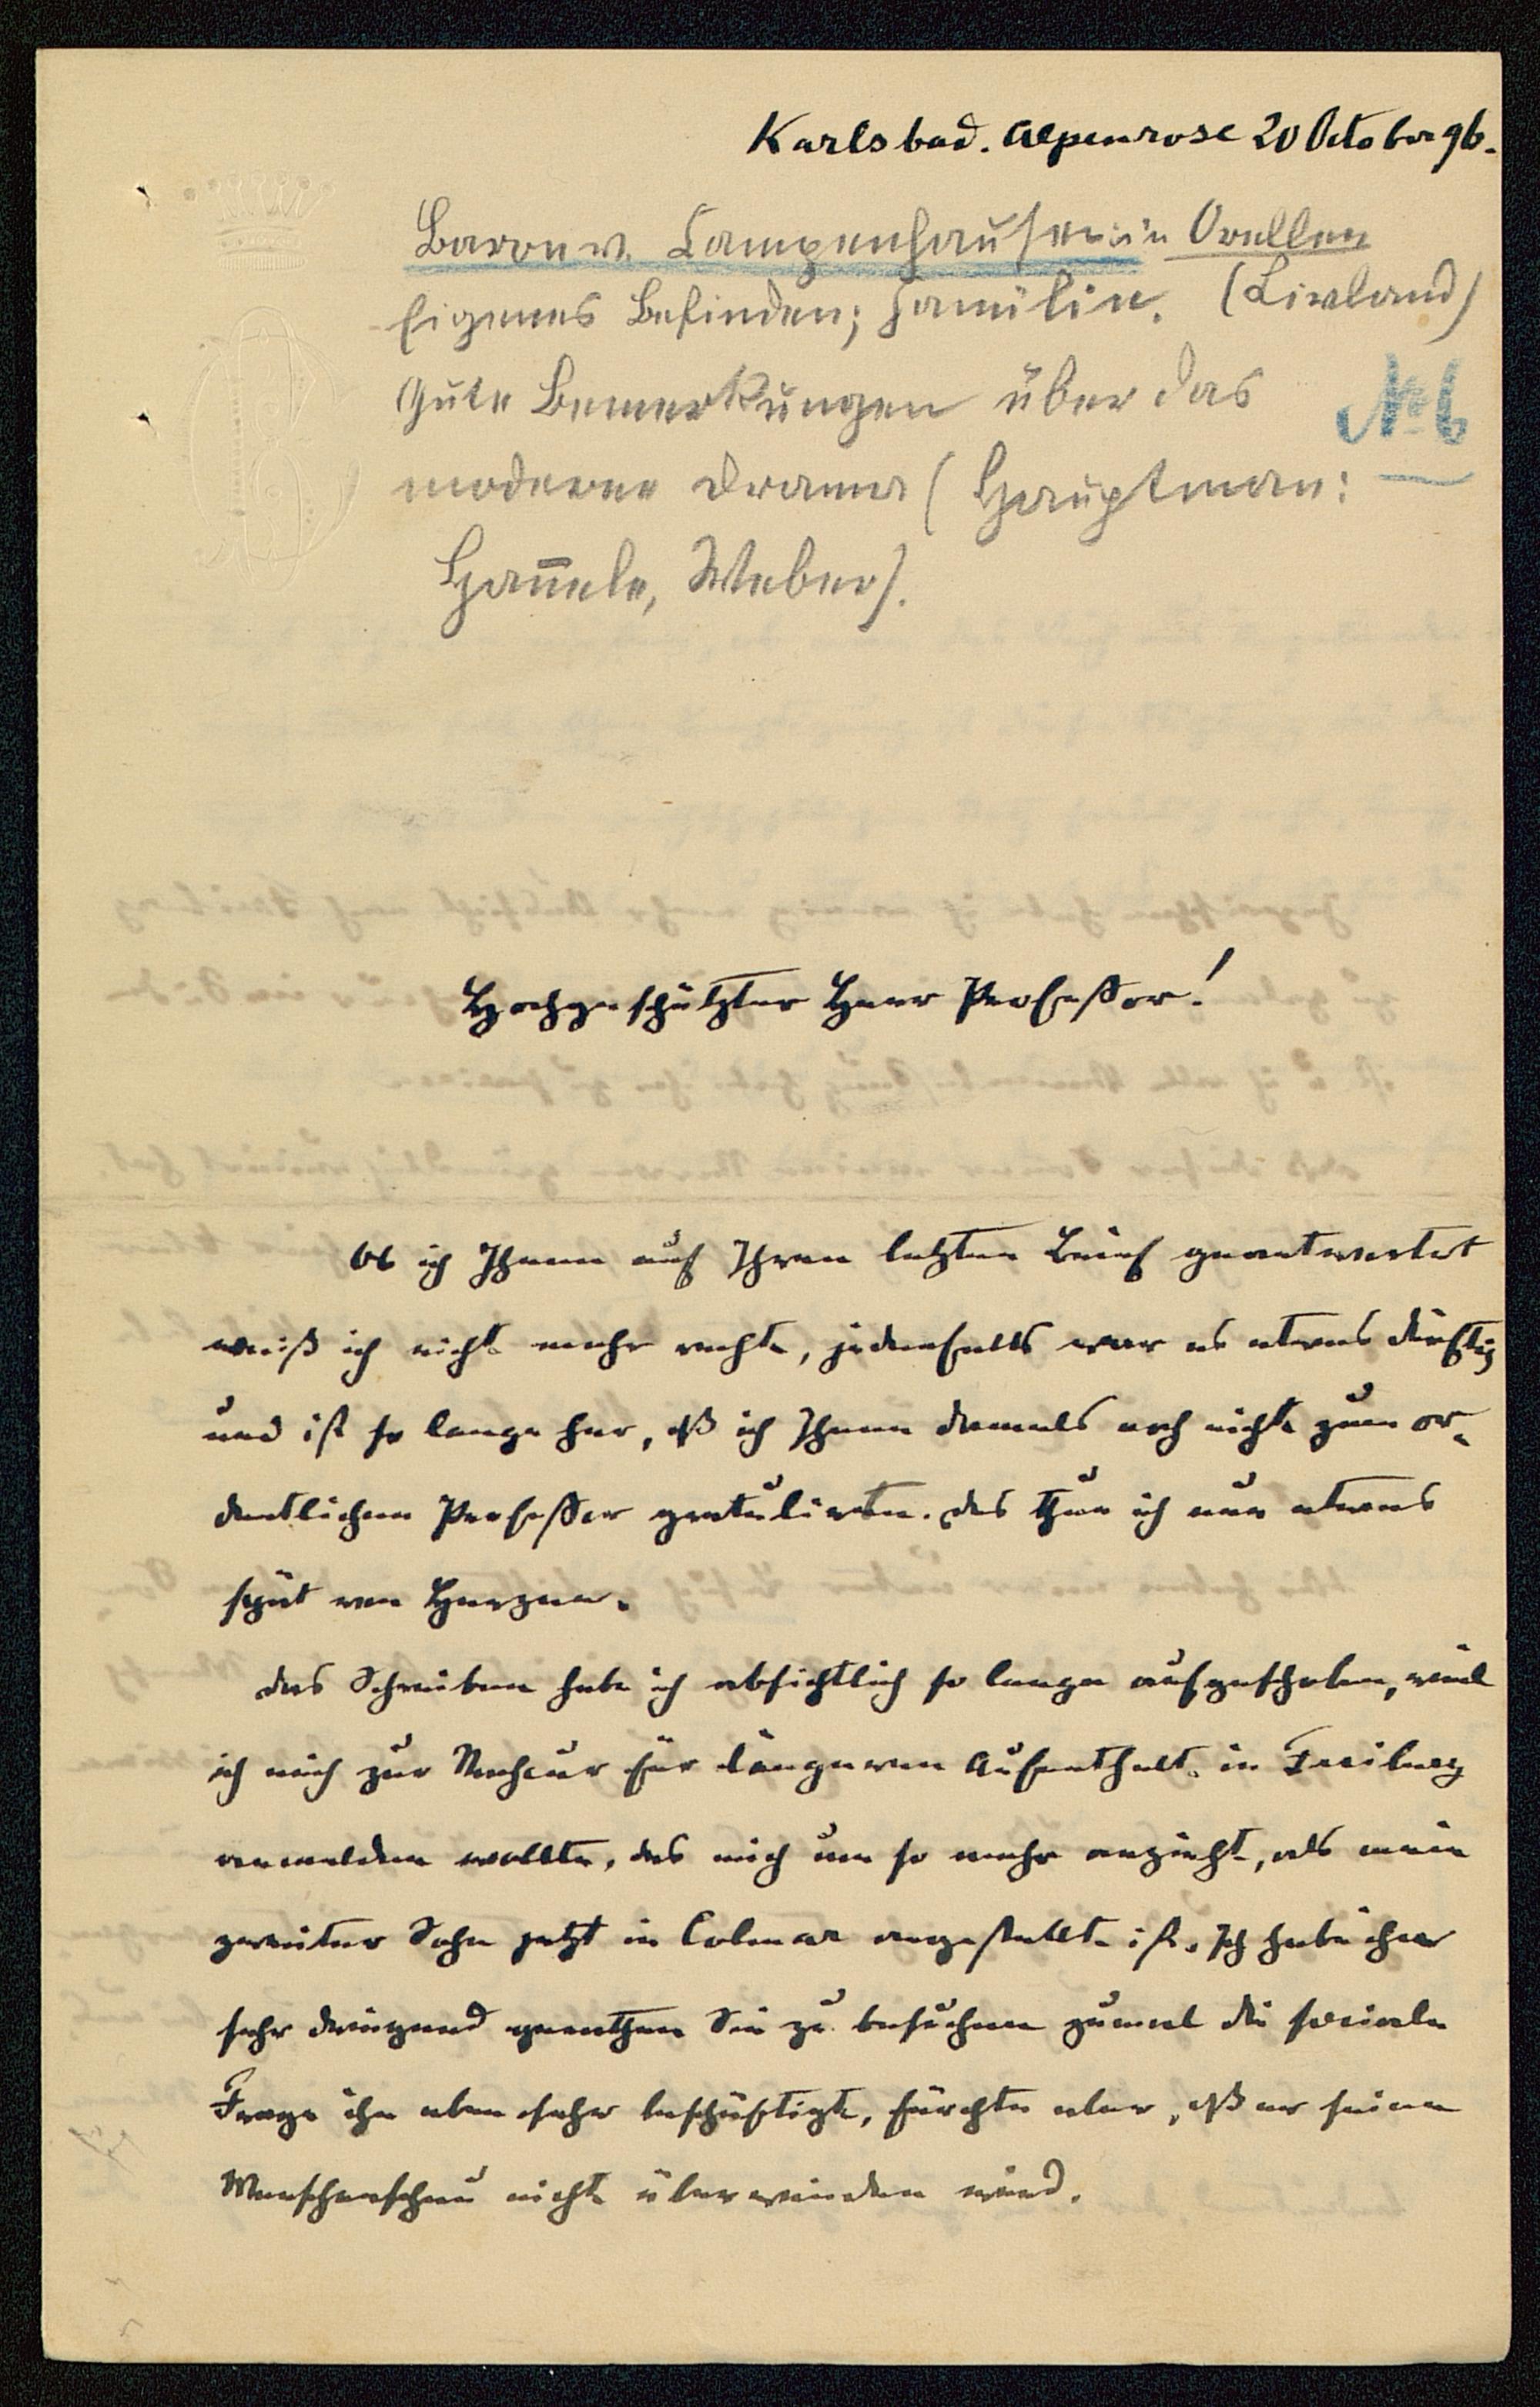 Karlsbad. Alpenrose 20 October 96.
Baron v. Campenhausen in Orellen
Eigenes Befinden; Familie. (Livland)
Gute Bemerkungen über das
№ 6
moderne Drama (Hauptman:
Han̅ele, Weber).
Hochgeschätzter Herr Professor!
Ob ich Ihnen auf Ihren letzten Brief geantwortet
weiß ich nicht mehr recht, jedenfalls war es etwas dürftig
und ist so lange her, dß ich Ihnen damals noch nicht zum or-
dentlichen Professor gratulirte. Das thue ich nun etwas
spät von Herzen.
Das Schreiben habe ich absichtlich so lange aufgeschoben, weil
ich mich zur Nachcur für längeren Aufenthalt in Freiburg
anmelden wollte, das mich um so mehr anzieht, als mein
zweiter Sohn jetzt in Colmar angestellt ist. Ich habe ihm
sehr dringend gerathen Sie zu besuchen zumal die sociale
Frage ihn eben sehr beschäftigt, fürchte aber, dß er seine
Menschenscheu nicht überwinden wird.